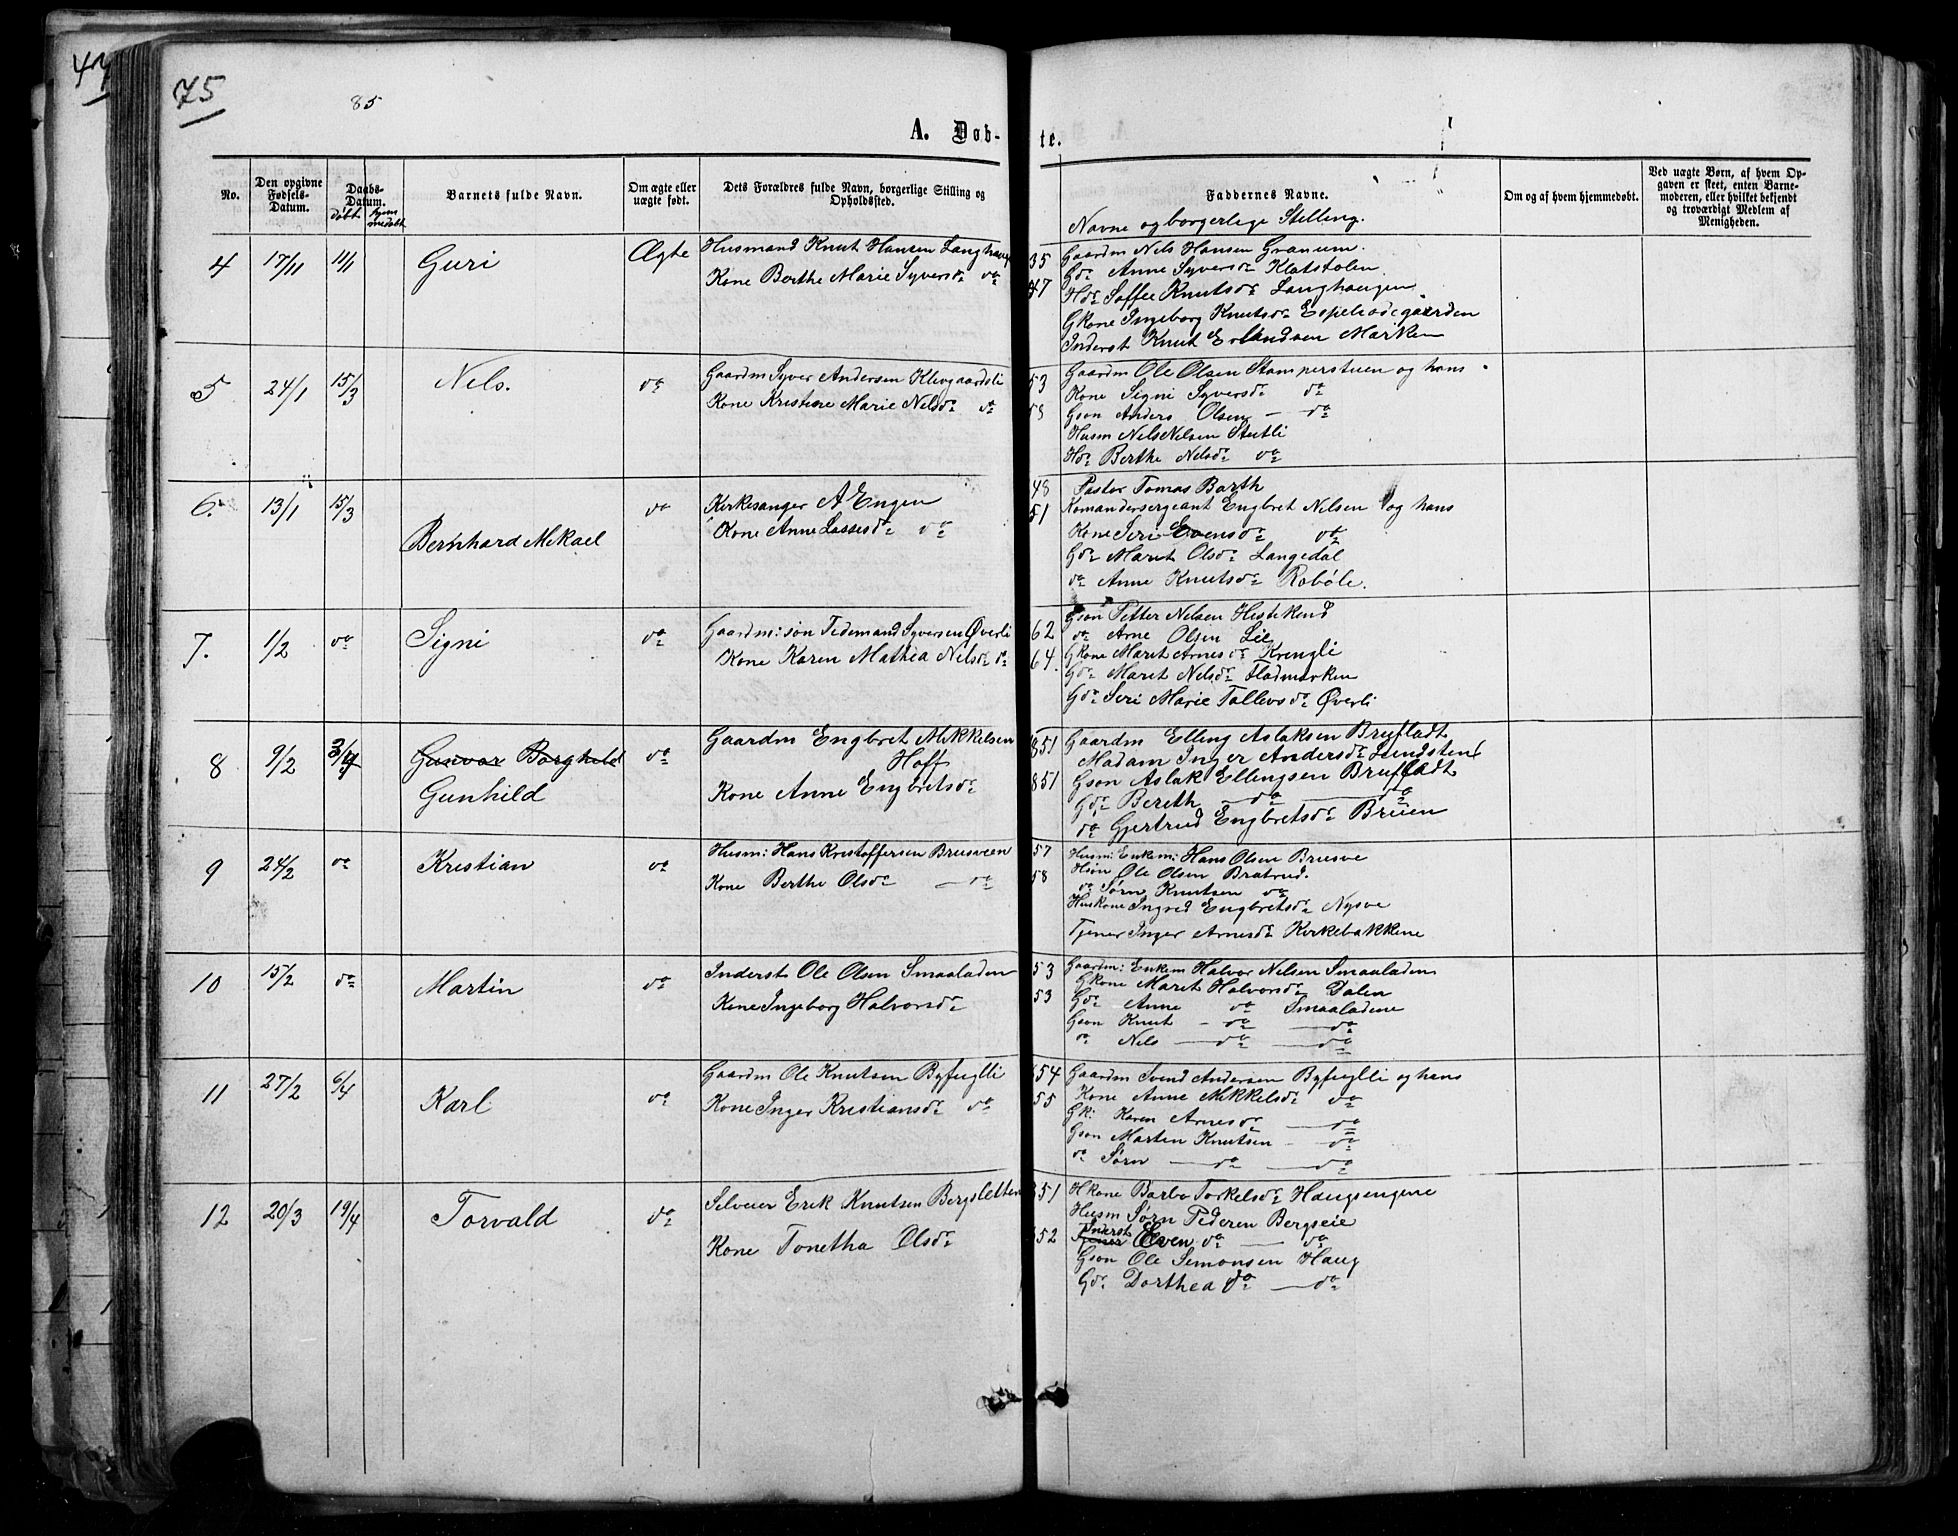 44
75
85
A. Döb-
te.
No.
Den opgivne Fødsels-Datum.
Daabs-Datum.
döbt
hjemmedöbt
Barnets fulde Navn.
Om ægte eller uægte født.
Dets Forældres fulde Navn, borgerlige Stilling og Opholdssted.
Faddernes Navne.
Navne og borgerlige Stilling.
Om og af hvem hjemmedøbt.
Ved uægte Børn, af hvem Opgaven er skeet, enten Barnemoderen, eller hvilket bekjendt og troværdigt Medlem af Menigheden.
4 17/11 11/1 Guri Ægte Husmand Knut Hansen Langhaug
Kone Berthe Marie Syversdr do
35
47
Gaardm Nels Hansen Granum.
Gdr Anne Syversdr Klatstolen
Hdr Soffie Knutsdr Langhaugen
Gkone Ingeborg Knutsdr Espelidegaarden
Inderst Knut Erlandsen Marken
5 24/1 15/3 Nels. do Gaardm Syver Andersen Klevgaardsli
Kone Kristine Marie Nelsdr do
53
58
Gaardm Ole Olsen Stamperstuen og hans
Kone Signi Syversdr do
Gson Anders Olsen — do
Husm Nels Nelsen Stutli
Hdr Berthe Nelsdr do
6. 13/1 15/3 Bernhard Mikael do Kirkesanger A Engen
Kone Anne Lassesdr do
48
51
Pastor Tomas Barth
Komandersergeant Engbret Nilsen og hans
Kone Seri Evensdr do
Gdr Marit Olsdr Langedal
do Anne Knutsdr Roböle.
7. 1/2 do Signi do Gaardm: sön Tedemand Syversen Øverli
Kone Karen Mathea Nilsdr do
62
64.
Gson Petter Nelsen Hestekend
do Arne Olsen Lie
Gkone Marit Arnesdr Krengli
Gdr Marit Nelsdr Fladmarken
Gdr Seri Marie Tollevsdr Øverli
8 9/2 3/4 Gunvor Borghild
Gunhild do Gaardm Engbret Mikkelsen
Hoff
Kone Anne Engbretsdr
851
851
Gaardm Elling Aslaksen Brufladt
Madam Inger Andersdr Lundsten
Gson Aslak Ellingsen Brufladt
Gdr Bereth — do — do
do Gjertrud Engbretsdr Bruen
9 24/2 do Kristian do Husm: Hans Kristoffersen Brusveen
Kone Berthe Olsdr — do
57
58
Husm: Enkem: Hans Olsen Brusve
Hsön Ole Olsen Bratrud.
do Sörn Knutsen do
Huskone Ingred Engbretsdr Nysve
Tjener Inger Arnesdr Kirkebakkene
10 15/2 do Martin do Inderst Ole Olsen Smaaladen
Kone Ingeborg Halvorsdr
53
53
Gaardm: Enkem Halvor Nelsen Smaaladen
Gkone Marit Halvorsdr Dalen
Gdr Anne do Smaaladene
Gson Knut — do — do
do Nels — do — do
11 27/2 6/4 Karl do Gaardm Ole Knutsen Byfuglli
Kone Inger Kristiansdr do
54
55
Gaardm Svend Andersen Byfuglli og hans
Kone Anne Mikkelsdr do
Gk: Karen Arnesdr — do
Gson Marten Knutsen — do
do Sörn — do — do
12 20/3 19/4 Torvald do Selveier Erik Knutsen Bergsletten
Kone Tonetha Olsdr
851
852
Hkone Barbo Torkelsdr Haugsengene
Husm Sörn Pederen Bergseie
Inderst
Tjener Even do — do
Gson Ole Semonsen Haug
Gdr Dorthea do — do